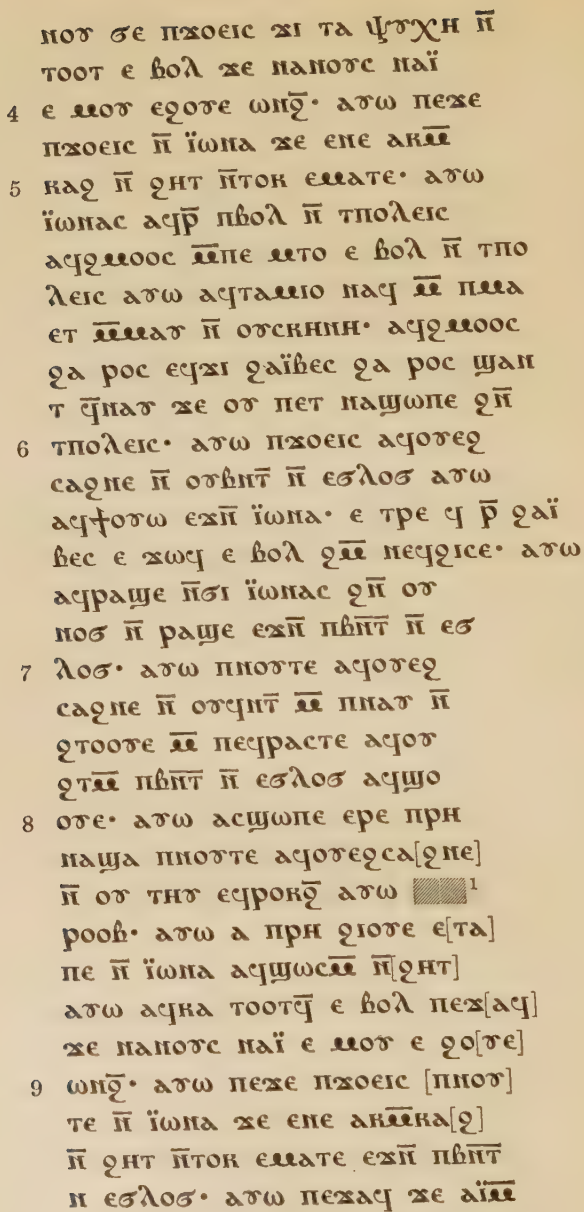 ⲛⲟⲩ ϭⲉ ⲡϫⲟⲉⲓⲥ ϫⲓ ⲧⲁ ⲯⲩⲭⲏ ⲛ̄
ⲧⲟⲟⲧ ⲉ ⲃⲟⲗ ϫⲉ ⲛⲁⲛⲟⲩⲥ ⲛⲁⲓ̈
4 ⲉ ⲙⲟⲩ ⲉϩⲟⲩⲉ ⲱⲛϩ̄· ⲁⲩⲱ ⲡⲉϫⲉ
ⲡϫⲟⲉⲓⲥ ⲛ̄ ⲓ̈ⲱⲛⲁ ϫⲉ ⲉⲛⲉ ⲁⲕⲙ̄
5 ⲕⲁϩ ⲛ̄ ϩⲏⲧ ⲛ̄ⲧⲟⲕ ⲉⲙⲁⲧⲉ· ⲁⲩⲱ
ⲓ̈ⲱⲛⲁⲥ ⲁϥⲣ̄ ⲡⲃⲟⲗ ⲛ̄ ⲧⲡⲟⲗⲉⲓⲥ
ⲁϥϩⲙⲟⲟⲥ ⲙ̄ⲡⲉ ⲙⲧⲟ ⲉ ⲃⲟⲗ ⲛ̄ ⲧⲡⲟ
ⲗⲉⲓⲥ ⲁⲩⲱ ⲁϥⲧⲁⲙⲓⲟ ⲛⲁϥ ⲙ̄ ⲡⲙⲁ
ⲉⲧ ⲙ̄ⲙⲁⲩ ⲛ̄ ⲟⲩⲥⲕⲏⲛⲏ· ⲁϥϩⲙⲟⲟⲥ
ϩⲁ ⲣⲟⲥ ⲉϥϫⲓ ϩⲁⲓ̈ⲃⲉⲥ ϩⲁ ⲣⲟⲥ ϣⲁⲛ
ⲧ ϥ̄ⲛⲁⲩ ϫⲉ ⲟⲩ ⲡⲉⲧ ⲛⲁϣⲱⲡⲉ ϩⲛ̄
6 ⲧⲡⲟⲗⲉⲓⲥ· ⲁⲩⲱ ⲡϫⲟⲉⲓⲥ ⲁϥⲟⲩⲉϩ
ⲥⲁϩⲛⲉ ⲛ̄ ⲟⲩⲃⲛⲧ̄ ⲛ̄ ⲉϭⲗⲟϭ ⲁⲩⲱ
ⲁϥϯⲟⲩⲱ ⲉϫⲛ̄ ⲓ̈ⲱⲛⲁ· ⲉ ⲧⲣⲉ ϥ ⲣ̄ ϩⲁⲓ̈
ⲃⲉⲥ ⲉ ϫⲱϥ ⲉ ⲃⲟⲗ ϩⲙ̄ ⲛⲉϥϩⲓⲥⲉ· ⲁⲩⲱ
ⲁϥⲣⲁϣⲉ ⲛ̄ϭⲓ ⲓ̈ⲱⲛⲁⲥ ϩⲛ̄ ⲟⲩ
ⲛⲟϭ ⲛ̄ ⲣⲁϣⲉ ⲉϫⲛ̄ ⲡⲃⲛ̄ⲧ̄ ⲛ̄ ⲉϭ
7 ⲗⲟϭ· ⲁⲩⲱ ⲡⲛⲟⲩⲧⲉ ⲁϥⲟⲩⲉϩ
ⲥⲁϩⲛⲉ ⲛ̄ ⲟⲩϥⲛⲧ̄ ⲙ̄ ⲡⲛⲁⲩ ⲛ̄
ϩⲧⲟⲟⲩⲉ ⲙ̄ ⲡⲉϥⲣⲁⲥⲧⲉ ⲁϥⲟⲩ
ϩⲧⲙ̄ ⲡⲃⲛ̄ⲧ̄ ⲛ̄ ⲉϭⲗⲟϭ ⲁϥϣⲟ
8 ⲟⲩⲉ· ⲁⲩⲱ ⲁⲥϣⲱⲡⲉ ⲉⲣⲉ ⲡⲣⲏ
ⲛⲁϣⲁ ⲡⲛⲟⲩⲧⲉ ⲁϥⲟⲩⲉϩⲥⲁ[ϩⲛⲉ]
ⲛ̄ ⲟⲩ ⲧⲏⲩ ⲉϥⲣⲟⲕϩ̄ ⲁⲩⲱ 1
ⲣⲟⲟⲃ· ⲁⲩⲱ ⲁ ⲡⲣⲏ ϩⲓⲟⲩⲉ ⲉ[ⲧⲁ]
ⲡⲉ ⲛ̄ ⲓ̈ⲱⲛⲁ ⲁϥϣⲱⲥⲙ̄ ⲛ̄[ϩⲏⲧ]
ⲁⲩⲱ ⲁϥⲕⲁ ⲧⲟⲟⲧϥ̄ ⲉ ⲃⲟⲗ ⲡⲉϫ[ⲁϥ]
ϫⲉ ⲛⲁⲛⲟⲩⲥ ⲛⲁⲓ̈ ⲉ ⲙⲟⲩ ⲉ ϩⲟ[ⲩⲉ]
9 ⲱⲛϩ̄· ⲁⲩⲱ ⲡⲉϫⲉ ⲡϫⲟⲉⲓⲥ [ⲡⲛⲟⲩ]
ⲧⲉ ⲛ̄ ⲓ̈ⲱⲛⲁ ϫⲉ ⲉⲛⲉ ⲁⲕⲙ̄ⲕⲁ[ϩ]
ⲛ̄ ϩⲏⲧ ⲛ̄ⲧⲟⲕ ⲉⲙⲁⲧⲉ ⲉϫⲛ̄ ⲡⲃⲛ̄ⲧ̄
ⲛ ⲉϭⲗⲟϭ· ⲁⲩⲱ ⲡⲉϫⲁϥ ϫⲉ ⲁⲓ̈ⲙ̄